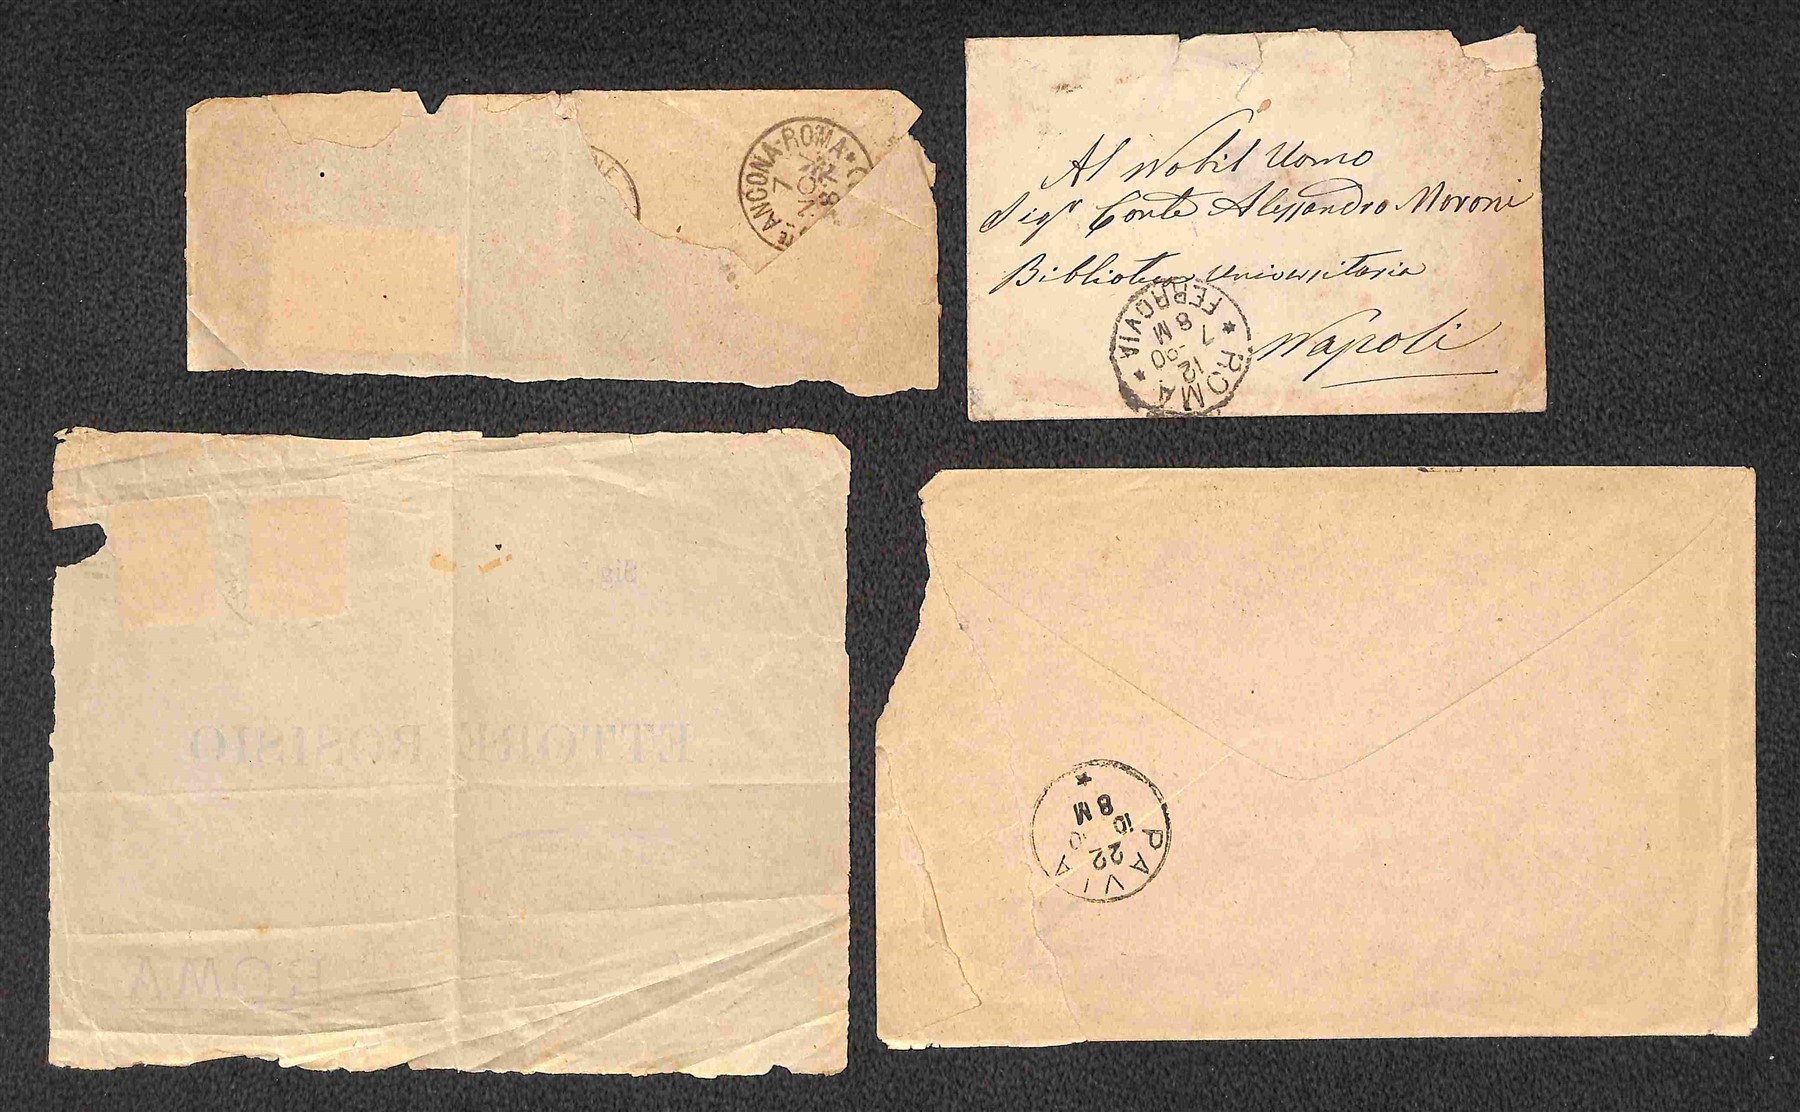 ANCONA-ROMA*(
7
OTT
Al Nobil Uomo
Sigr Conte Alessandro Moroni
Biblioteca Universitaria
Napoli
* ROMA *
FERROVIA
12
-90
7
8 M
Sig
ETTORE ROSISIO
ROMA
PAVIA
22
10
8 M
*